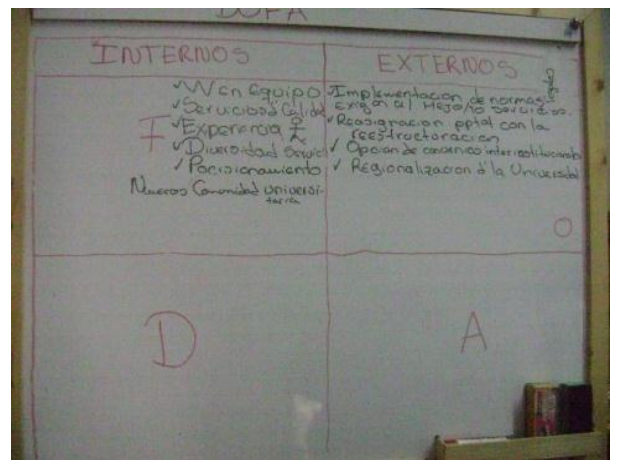 DOFA
INTERNOS
EXTERNOS
F
✓ W en Equipo
✓ Servicios d Calidad
✓ Experiencia
✓ Diversidad Servici
✓ Posicionamiento
Nuevos Comunidad universi-
taria
✓ Implementación de normas
exigen el Mejo/to servicios.
✓ Reasignación pptal con la
reestructoración
✓ Opción de convenios interinstitucional
✓ Regionalización d la Universidad
O
D
A